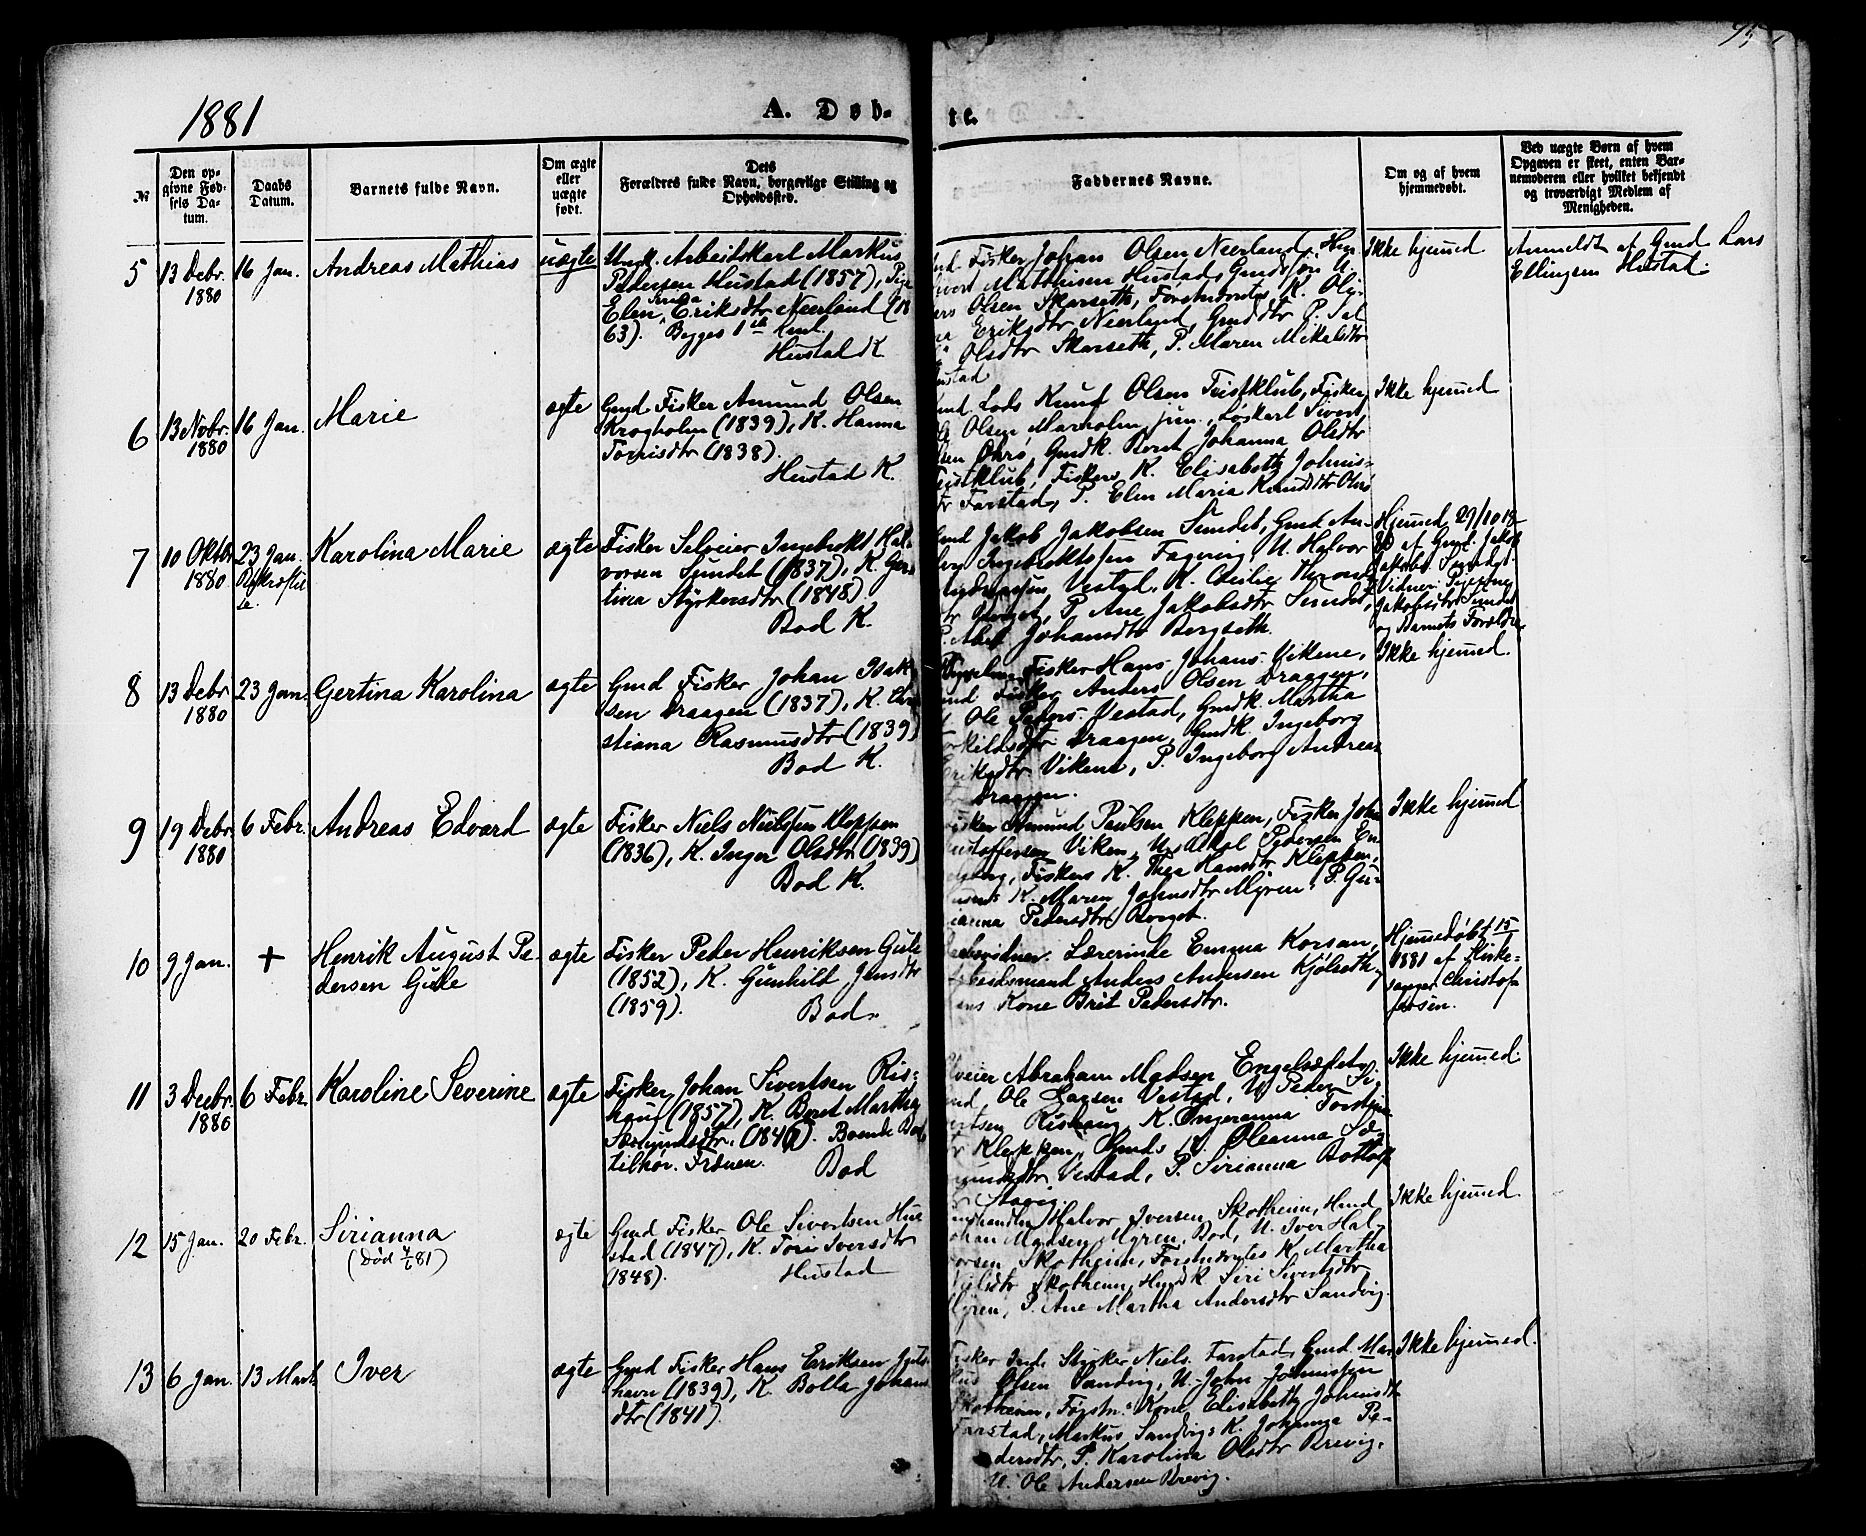 75
1881
A. Døb-
te.
№
Den op-
givne Fød-
sels Da-
tum.
Daabs
Datum.
Barnets fulde Navn.
Om ægte
eller
uægte
født.
Dets
Forældres fulde Navn, borgerlige Stilling og
Opholdssted.
Faddernes Navne.
Om og af hvem
hjemmedøbt.
Ved uægte Børn af hvem
Opgaven er skeet, enten Bar-
nemoderen eller hvilket bekjendt
og troværdigt Medlem af
Menigheden.
5
13 Debr.
1880
16 Jan.
Andreas Mathias
uægte
Ungk. Arbeidskarl Markus
Pedersen Hustad (1857), Pige
Elen Eriksdtr Neerland (18
63). Begges 1ste Leierm.
Hustad K
Fisker Johan Olsen Neerland,
Matthisen Hustad, Gmdssøn U.
Olsen Skarseth, Forstanderstes K. Oli-
Eriksdtr Neerland, Gmddtr P.
Olsdtr Skarseth, P. Maren Mikalsdtr
Hustad
Ikke hjemmed
Anmeldt af Gmd Lars
Ellingsen Hustad.
6
13 Novbr.
1880
16 Jan.
Marie
ægte
Gmd Fisker Amund Olsen
Kragholm (1839), K. Hanna
Tørrisdtr (1838).
Hustad K.
Lods Knud Olsen Teistklub, Fisker
Olsen Marholm jun., Løskarl Sivert
Ohrø, Gmdk. Beret Johanna Olsdtr
Teistklub, Fiskers K. Elisabeth Johnis-
Farstad, P. Elen Maria Knudsdtr Ohrø
Ikke hjemmed
7
10 Oktbr
1880
23 Jan.
Karolina Marie
ægte
Fisker Selveier Ingebrikt Hal-
vorsen Sundet (1837), K. Ger-
tina Styrkersdtr (1848).
Bod K.
Gmd Jakob Jakobsen Sundet, Gmd An-
Ingebriktssen Fagervig, U. Halvor
Vestad, K.
P. Ane Jakobsdtr Sundet,
Johansdtr Bergseth.
Hjemmed 29/10 18
80 af Gmd. Jakob
Jakobs. Sundet.
Vidner: Pigerne
Jakobsdtr Sundet
og Barnets Forældre.
8
13 Debr
1880
23 Jan.
Gertina Karolina
ægte
Gmd Fisker Johan Isak-
sen Draagen (1837), K. Chri-
stiana Rasmusdtr (1839)
Bod K.
Fisker Hans Johans. Vikene,
Fisker Anders Olsen Draagen,
Ole Peders. Vestad, Gmdk. Martha
Torkildsdtr Draagen, Gmdk. Ingeborg
Eriksdtr Vikene, P. Ingeborg Andreas
Draagen.
Ikke hjemmed.
9
19 Debr.
1880
6 Febr.
Andreas Edvard
ægte
Fisker Niels Nielsen Kleppen
(1836), K. Inger Olsdtr (1839)
Bod K.
Fisker Amund Paulsen Kleppen, Fisker John
Viken, U. Pedersen
Fiskers K. Thea Hansdtr Kleppen,
K. Maren Johnsdtr Myren, P.
Pedersdtr Berget.
Ikke hjemmed
10
9 Jan.
+
Henrik August Pe-
dersen Gule
ægte
Fisker Peder Henriksen Gule
(1852), K. Gunhild Jensdtr
(1859).
Bod.
Daabsvidner: Lærerinde Emma Korsan,
Arbeidsmand Anders Andersen Kjølseth,
hans Kone Brit Pedersdtr.
Hjemmedøbt 15/1
1881 af Kirke-
sanger Christof-
fersen.
11
3 Decbr.
1880
6 Febr.
Karoline Severine
ægte
Fisker Johan Sivertsen Ris-
haug (1857), K. Beret Martha
Sæmundsdtr. (1840). Boende Bod,
tilhør. Frænen.
Bod
Selveier Abraham Madsen Engelsæter,
Gmd, Ole Larsen Vestad, U. Peder Si-
vertsen Rishaug, K. Ingeranna
Kleppen, Gmds K. Oleanna Sæ-
mundsdtr Vestad, P. Sirianna
Stavig.
Ikke hjemmed.
12
15 Jan.
20 Febr.
Sirianna
(Død 4/6 81)
ægte
Gmd Fisker Ole Sivertsen Hu-
stad (1847), K. Tori Iversdtr
(1848).
Hustad
Landhandler Halvor Iversen Skotheim,
Johan Madsen Myren, Bod, U. Iver Hal-
vorsen Skotheim, K. Martha
Skotheim, Siri Sivertsdtr
Myren, P. Ane Martha Andersdtr Sandvig.
Ikke hjemmed.
13
6 Jan.
13 Marts
Iver
ægte
Gmd Fisker Hans Eriksen
havn (1839), K. Bolla Johans-
dtr (1841).
Fisker Inds. Styrker Niels. Farstad, Gmd Mar-
kus Olsen Sandvig, U. John Johnissen
Skotheim, Kone Elisabeth Johnisdtr
Farstad, Markus Sandvigs K. Johanna Pe-
dersdtr, P. Karolina Olsdtr Brevig,
U. Ole Andersen Brevig.
Ikke hjemmed.